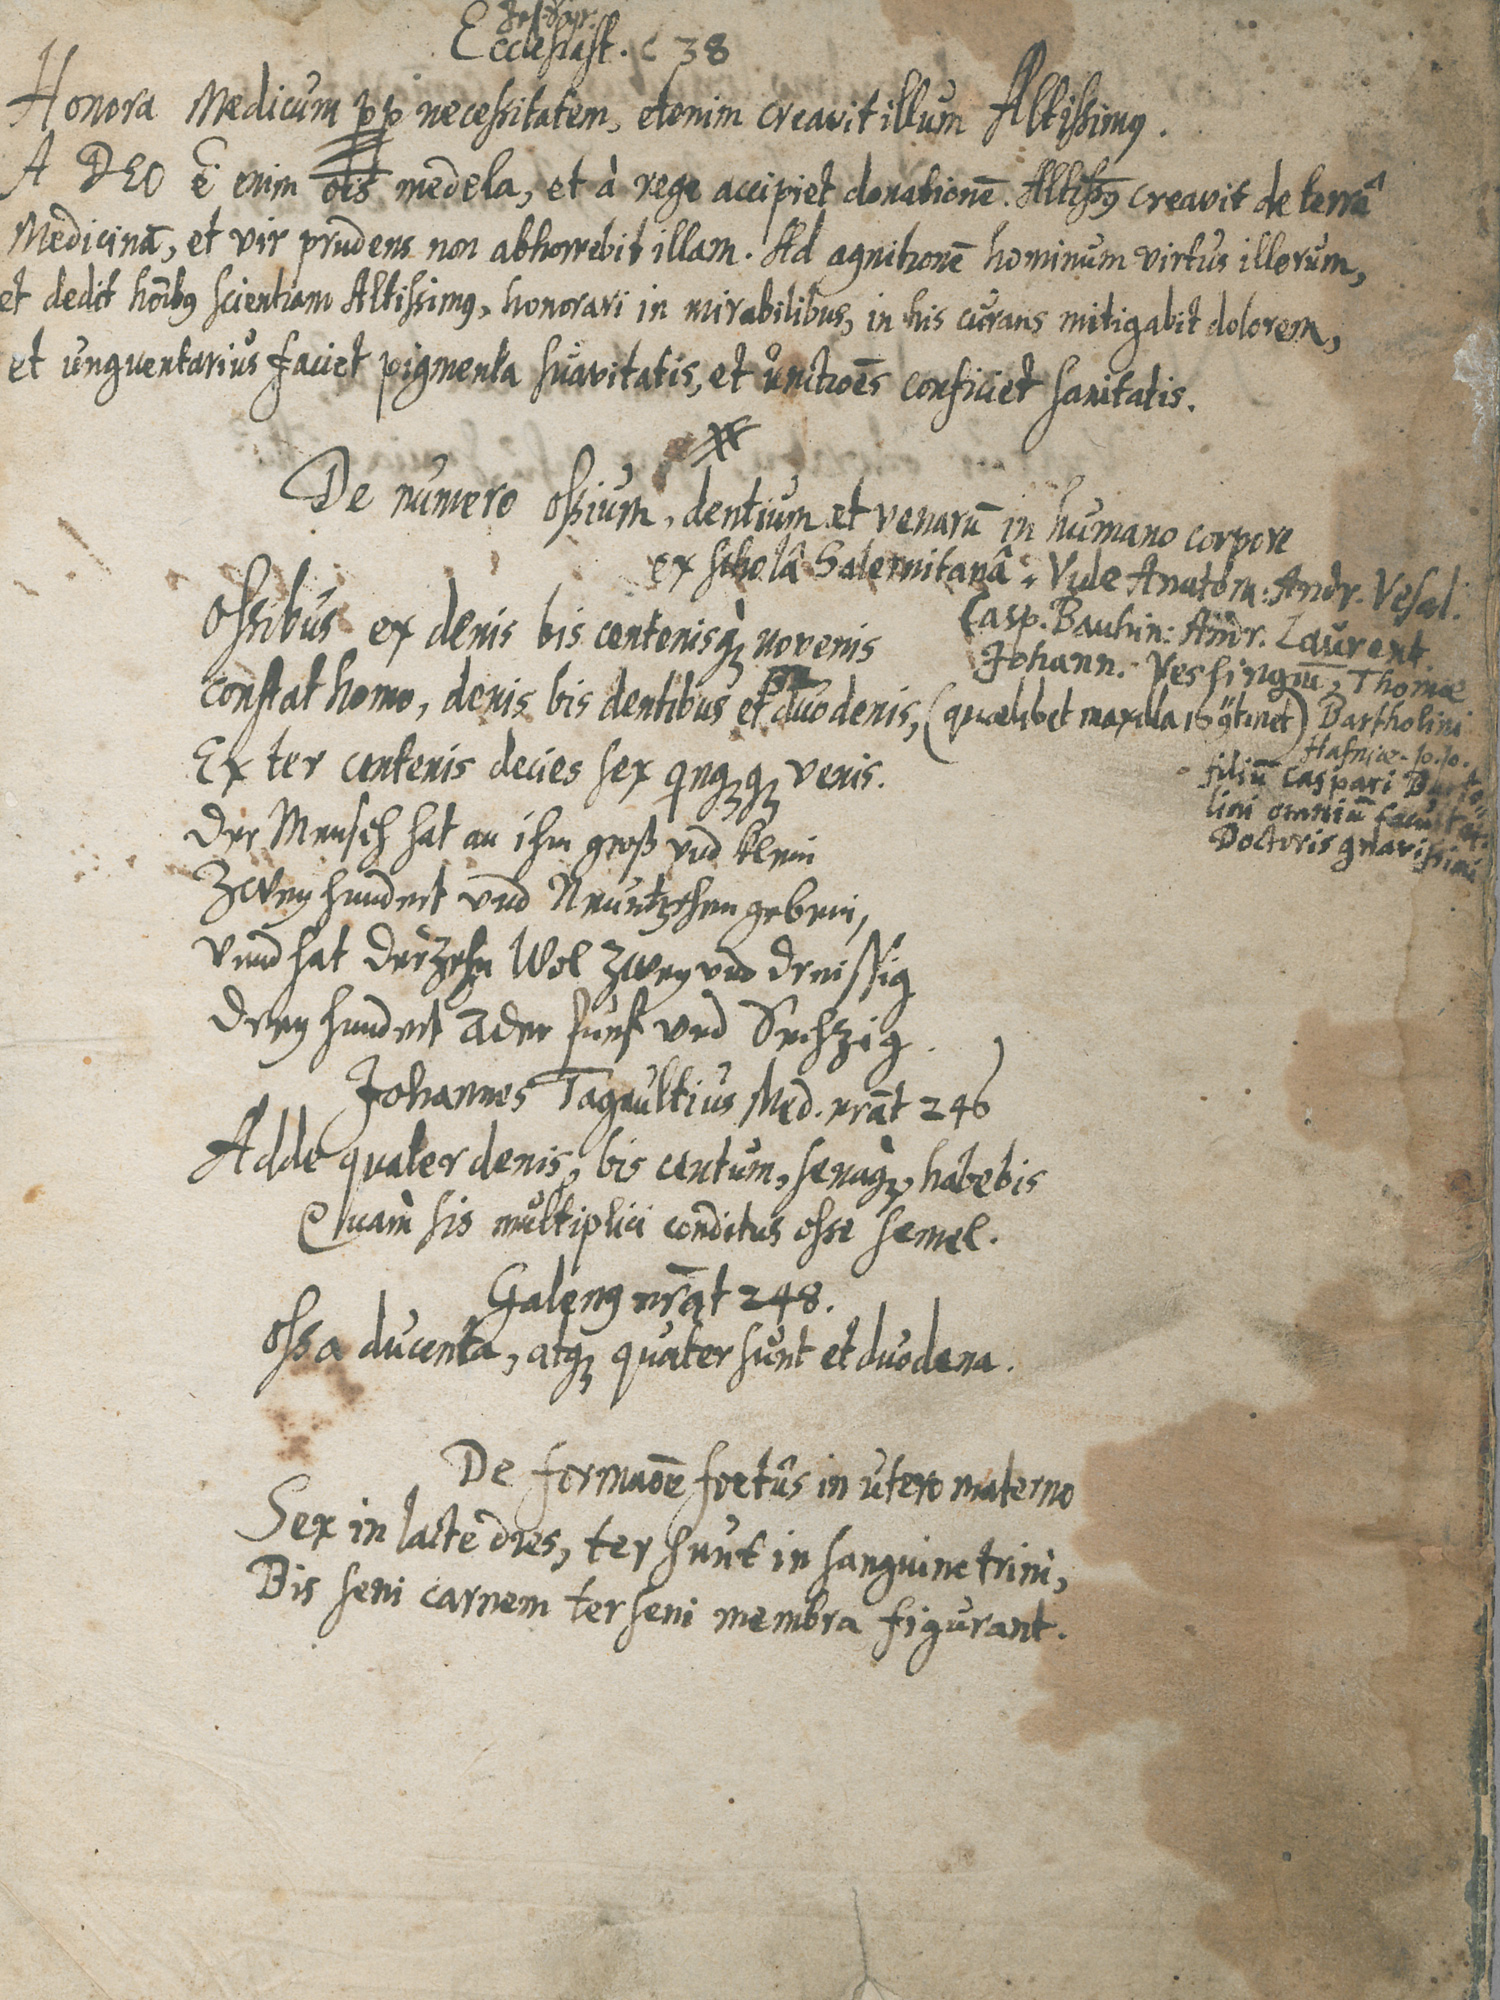 Ecclesiast. c 38
Honora Medicum pp necessitatem, etenim creavit illum Altissimq.
A DEO ē enim oīs medela, et à rege accipiet donationē. Altissq creavit de terrâ
Medicinā, et vir prudens non abhorrebit illam. Ad agnitionē hominum virtus illorum,
et dedit hoībq scientiam Altissimq, honorari in mirabilibus, in his curans mitigabit dolorem,
et unguentarius faciet pigmenta suavitatis, et unctioēs conficiet sanitatis.
De numero ossium, dentium et venarū in humano corpore
ex scholâ Salernitanâ. Vide Anatom: Andr. Vesal.
Casp. Bauhin: Andr. Laurent.
Johann. Veslingiū, Thomæ
Bartholini
Hafniæ
filiū Caspari Barto-
lini omniū facultat.
Doctoris gnavissimi
Ossibus ex denis bis centenisq; novenis
Constat homo, denis bis dentibus et duodenis, (quælibet maxilla 16 ɔtinet)
Ex ter centenis decies sex qnq;q; venis.
Der Mensch hat an ihm groß vnd klein
Zwey hundert vnd Neuntzehen gebein,
Vnnd hat der zehn Wol zwey vnd dreissig
Drey hundert Ader fünf vnd Sechzig.
Johannes Tagaultius Med. nrāt 246
Adde quater denis, bis centum, senaq;, habebis
Quàm sis multiplici conditus osse semel.
Galenq nrāt 248.
Ossa ducenta, atq; quater sunt et duodena.
De formaōe foetûs in utero materno
Sex in lacte dies, ter sunt in sanguine trini,
Bis seni carnem ter seni membra figurant.